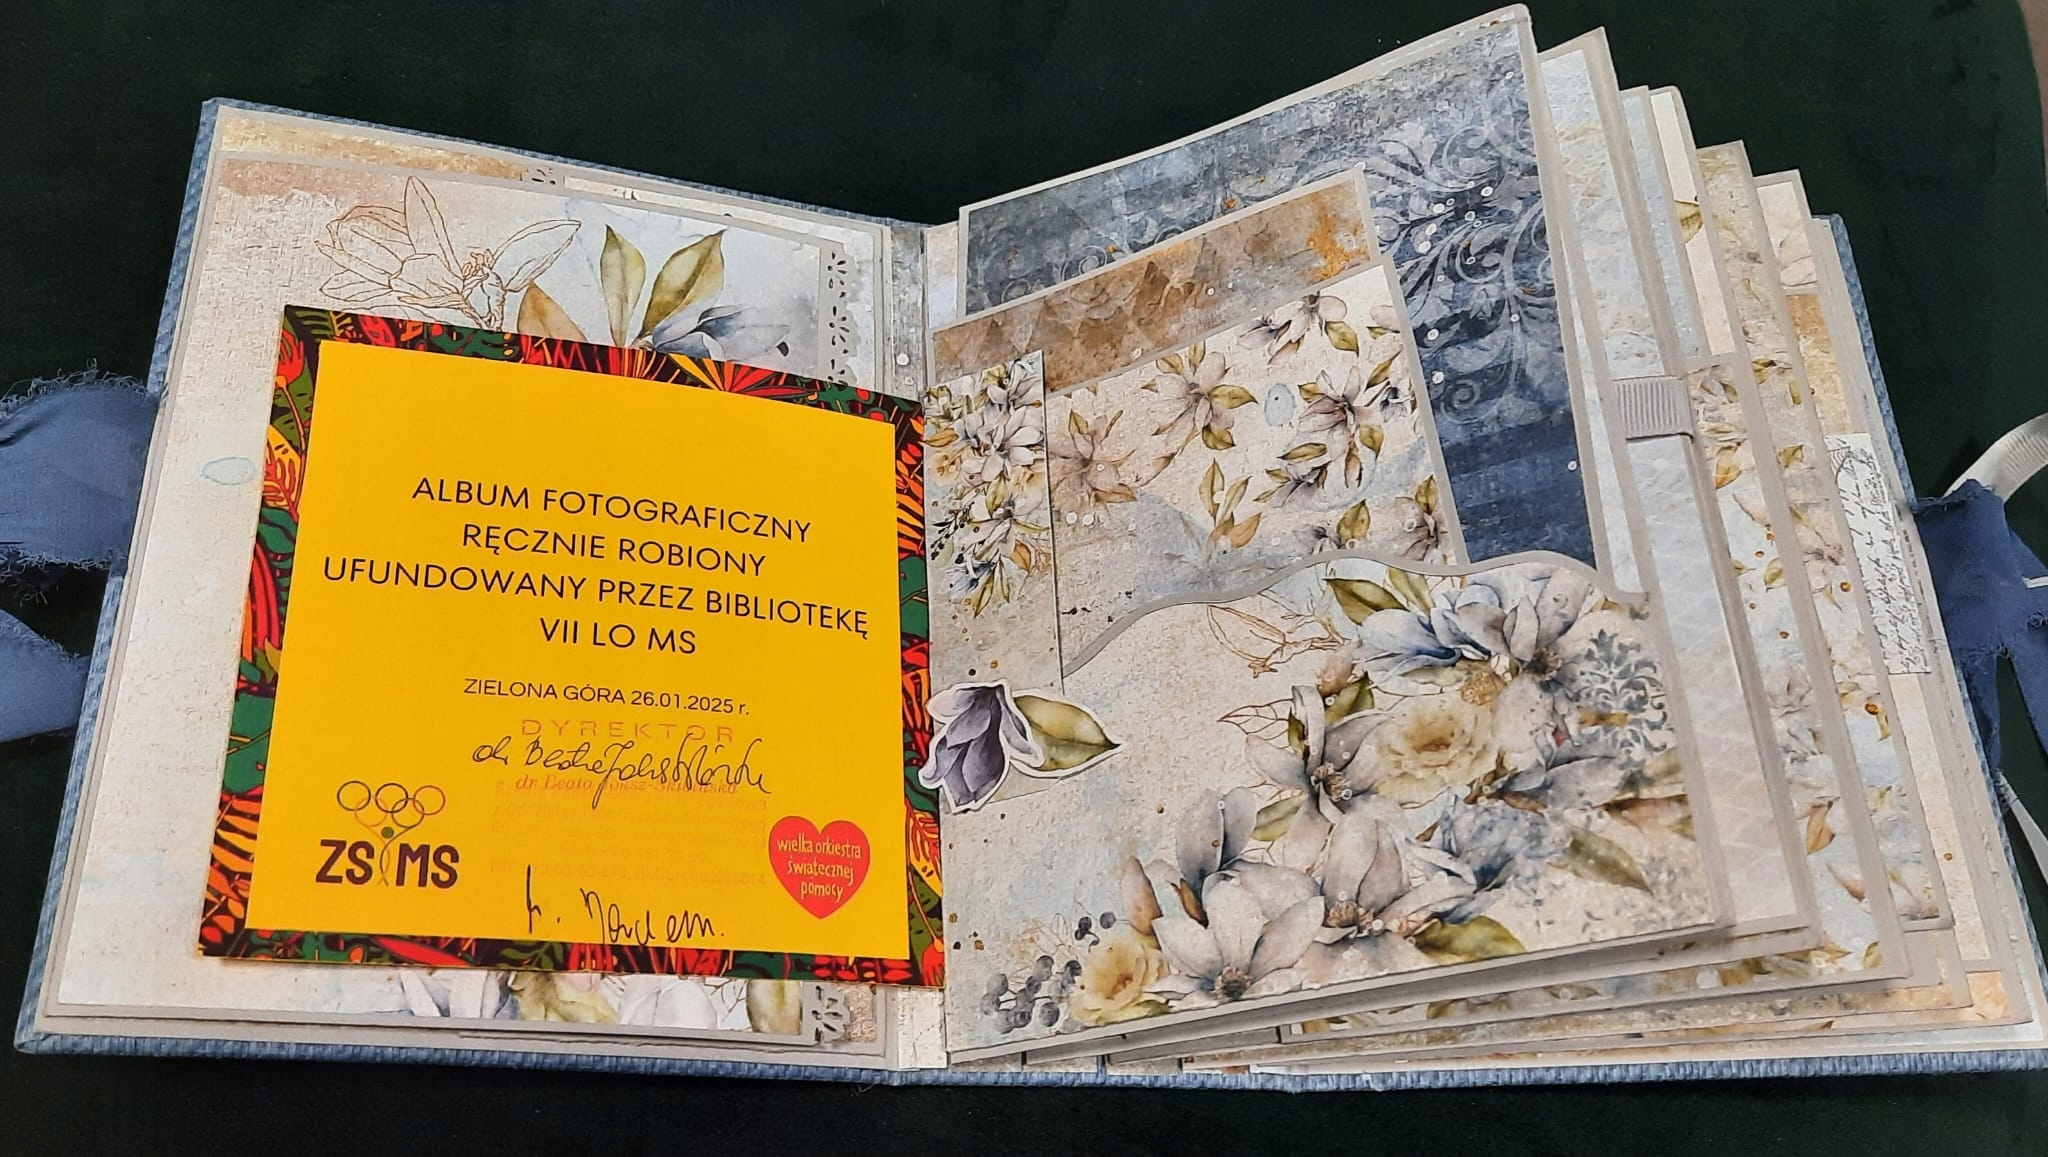 ALBUM FOTOGRAFICZNY
RĘCZNIE ROBIONY
UFUNDOWANY PRZEZ BIBLIOTEKĘ
VII LO MS
ZIELONA GÓRA 26.01.2025 r.
DYREKTOR
dr Beata
ZS MS
wielka orkiestra
świątecznej
pomocy